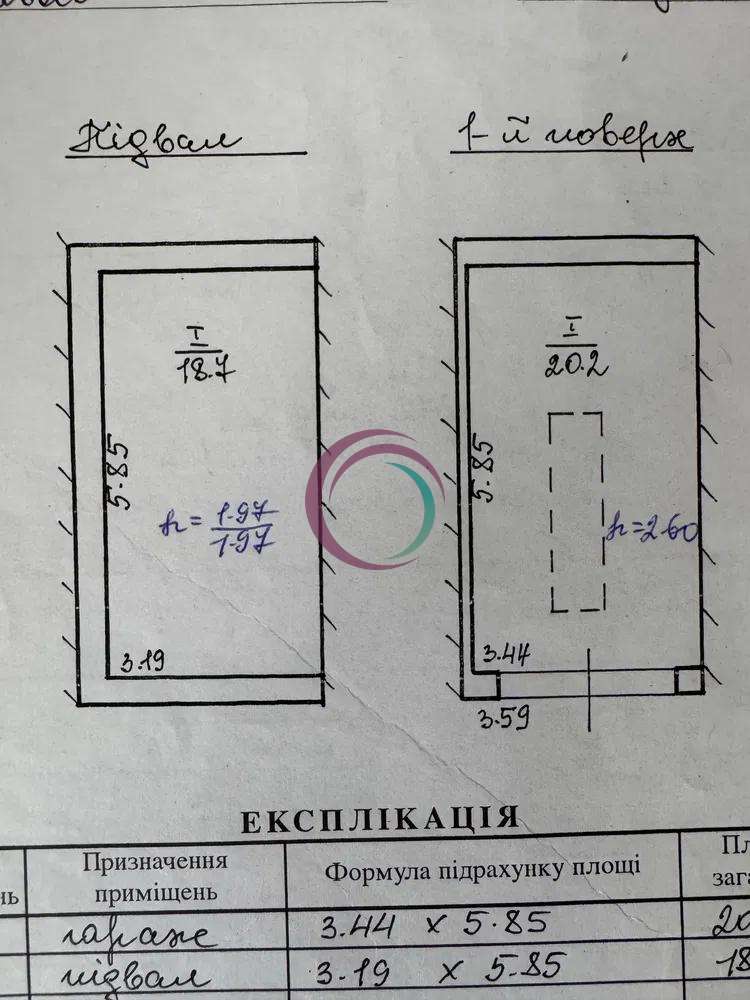 Підвал
1-й поверх
I
18.7
5.85
h=1.97
1.97
3.19
I
20.2
5.85
h=2.60
3.44
3.59
ЕКСПЛІКАЦІЯ
нь
Призначення
приміщень
Формула підрахунку площі
Пл
зага
гараж
3.44 x 5.85
20
підвал
3.19 x 5.85
18